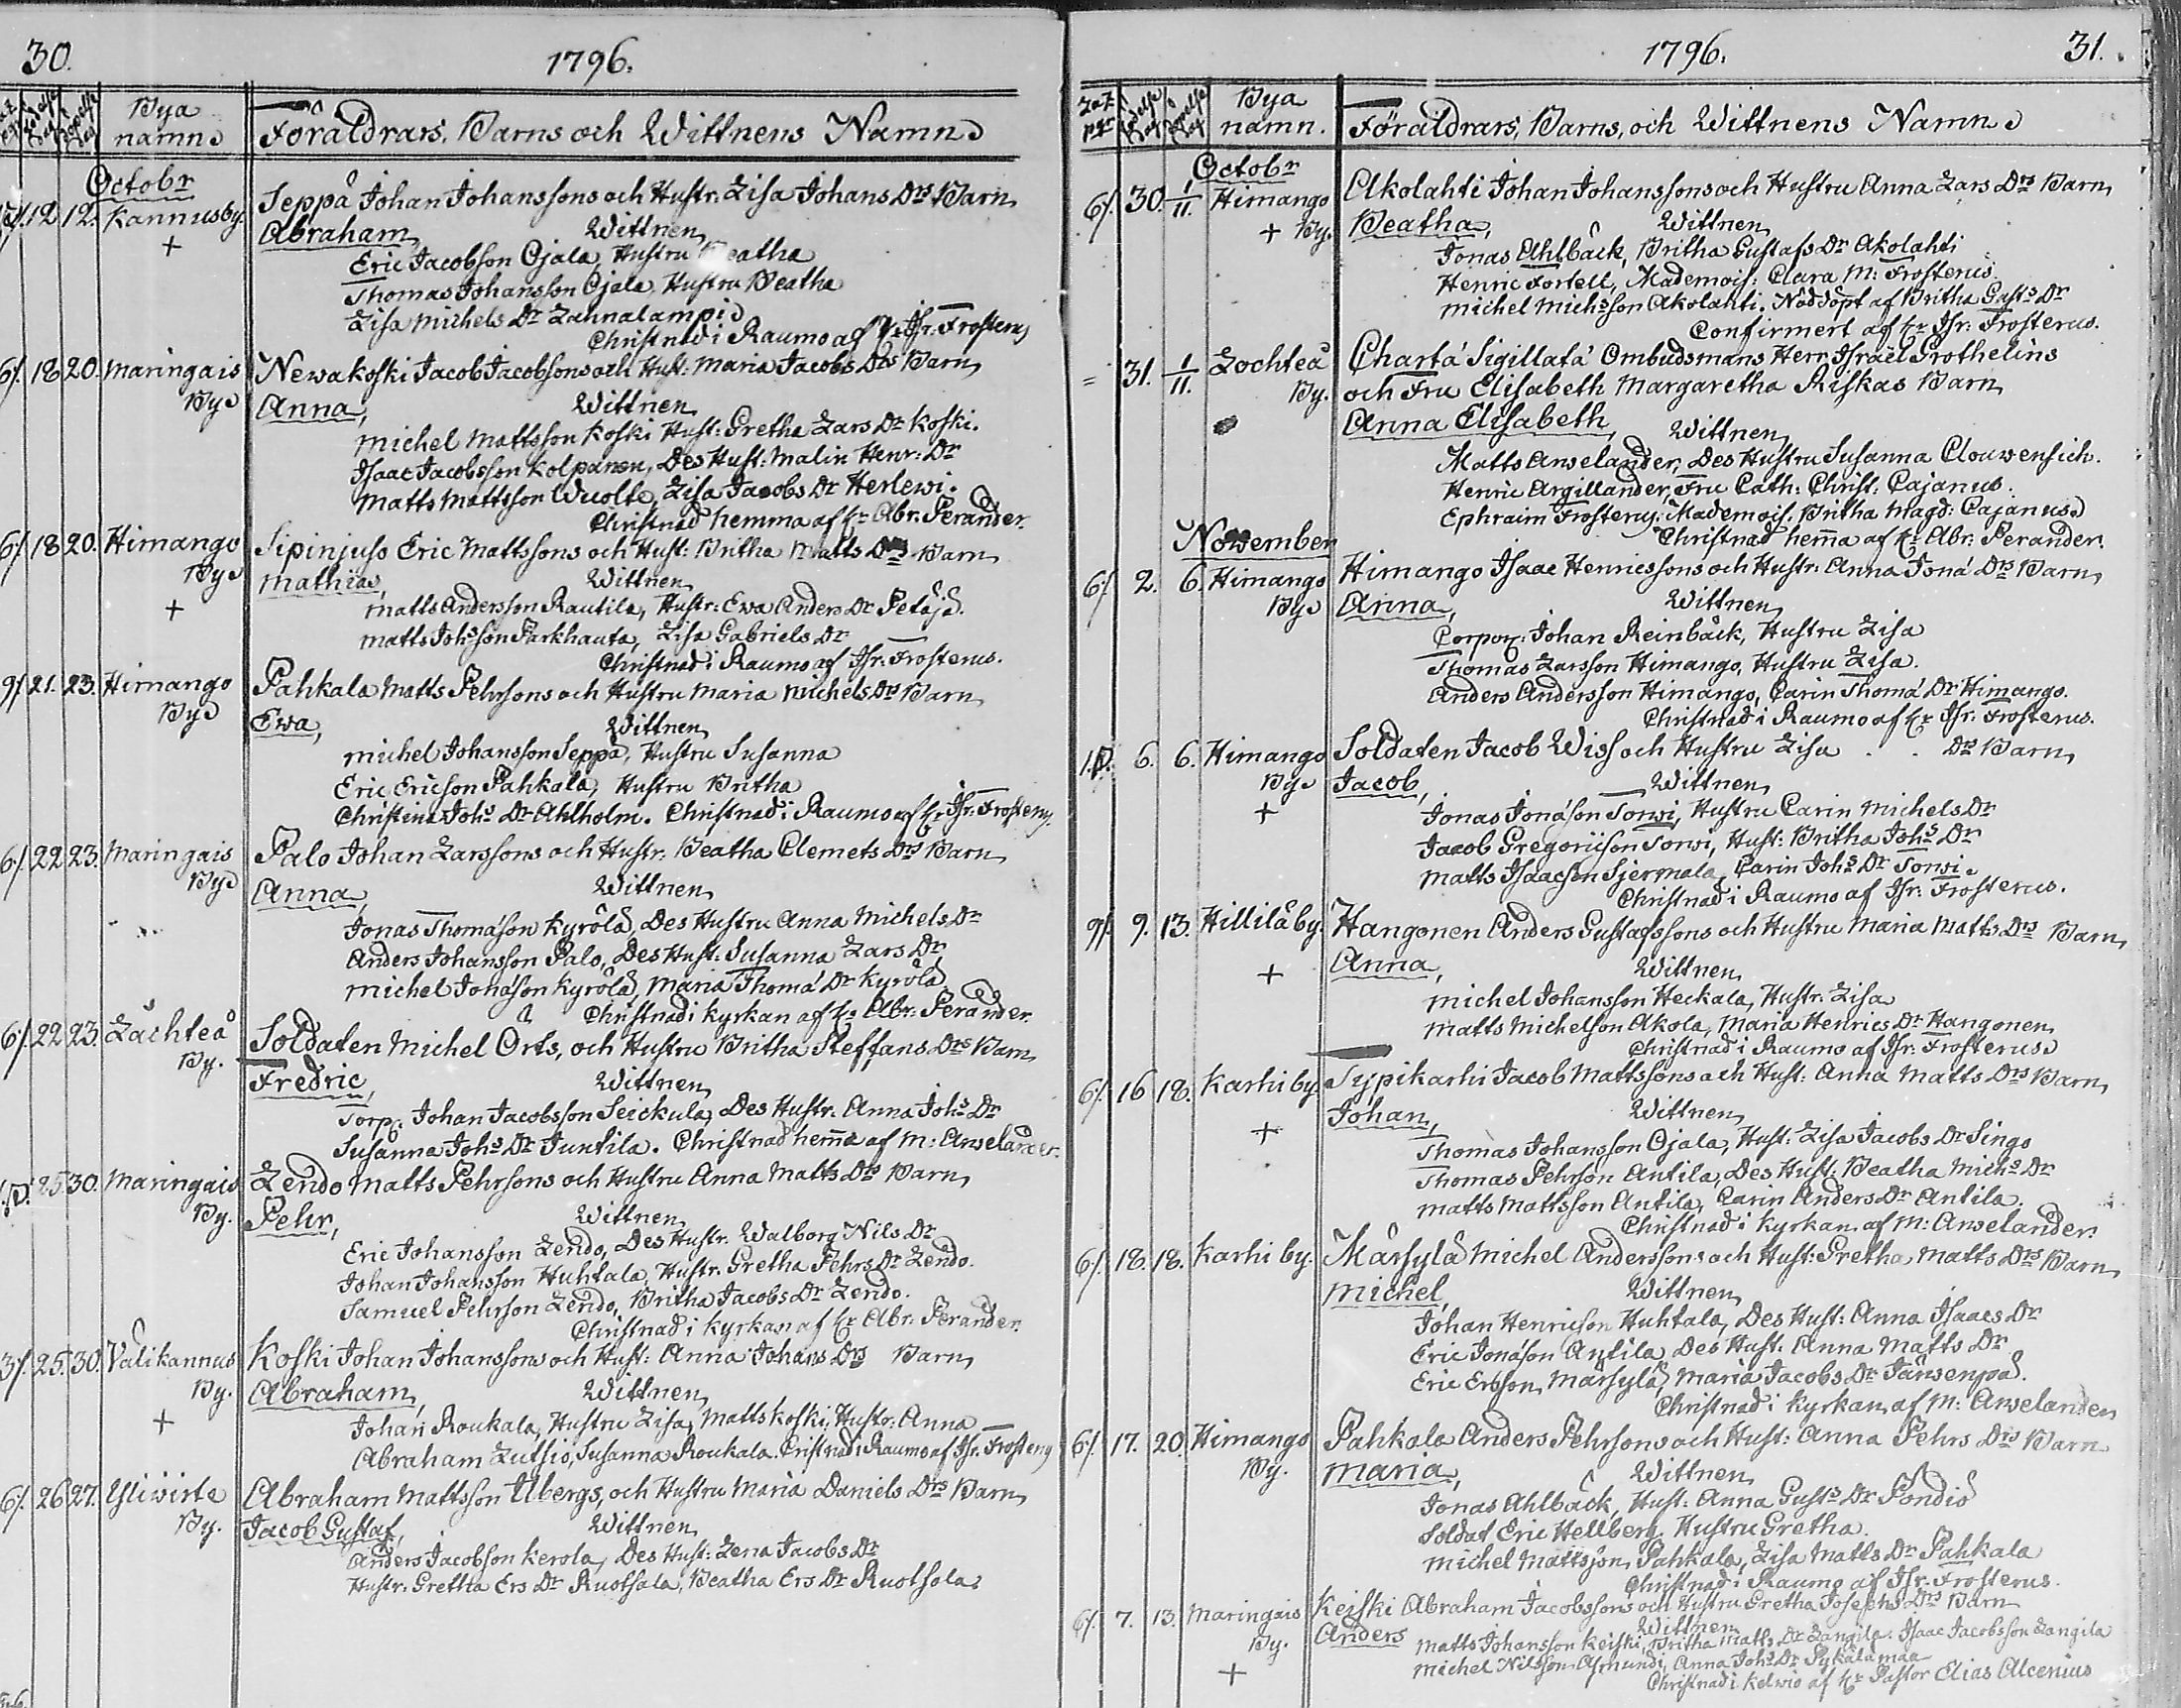 30.
1796.
Bya namn
Föräldrars, Barns och Wittnens Namn
Octobr
12 12. Kannusby. Seppä Johan Johanssons och Hustr. Lisa Johans Drs Barn
+ Abraham, Wittnen
Eric Jacobsson Ojala, Hustru Beatha
Thomas Johansson Ojala, Hustru Beatha
Lisa Michels Dr Lahnalampi
Christnad i Raumo af Hr Isr. Frosterus
6/. 18 20. Maringais Newakoski Jacob Jacobssons och Hust: Maria Jacobs Drs Barn
By Anna, Wittnen
Michel Mattsson Koski Hust: Gretha Lars Dr Koski.
Isaac Jacobsson Kolpanen, Des Hust: Malin Henr: Dr
Matts Mattsson Wuolte, Lisa Jacobs Dr Herlewi.
Christnad hemma af Hr Abr. Perander.
6/. 18 20. Himango Sipinjuso Eric Mattssons och Hust: Britha Matts Drs Barn
By Mathias, Wittnen
+ Matts Andersson Rautila, Hustr: Ewa Anders Dr Petäjä.
Matts Johsson Parkhauta, Lisa Gabriels Dr
Christnad i Raumo af Isr: Frosterus.
9/. 21. 23. Himango Pahkala Matts Pehrsons och Hustru Maria Michels Drs Barn
By Ewa, Wittnen
Michel Johansson Seppä, Hustru Susanna
Eric Ericson Pahkala, Hustru Britha
Christina Johs Dr Ahlholm. Christnad i Raumo af Hr Isr: Frosterus.
6/. 22 23. Maringais Palo Johan Larssons och Hustr: Beatha Clemets Drs Barn
By Anna, Wittnen
Jonas Thomåson Kyrölä, Des Hustru Anna Michels Dr
Anders Johansson Palo, Des Hust: Susanna Lars Dr
Michel Jonåson Kyrölä, Maria Thomå Dr Kyrölä
Christnad i Kyrkan af Hr Abr: Perander.
6/. 22 23. Låchteå Soldaten Michel Orts, och Hustru Britha Steffans Drs Barn
By. Fredric, Wittnen
Torp: Johan Jacobsson Seickula, Des Hustr. Anna Johs Dr
Susanna Johs Dr Juntila. Christnad hema af M: Anselander.
25 30. Maringais Lendo Matts Pehrsons och Hustru Anna Matts Drs Barn
By. Pehr, Wittnen
Eric Johansson Lendo, Des Hustr. Walborg Nils Dr
Johan Johansson Huhtala, Hustr. Gretha Pehrs Dr Lendo.
Samuel Pehrson Lendo, Britha Jacobs Dr Lendo.
Christnad i Kyrkan af Hr Abr: Perander.
3/. 25. 30. Välikannus Koski Johan Johanssons och Hust: Anna Johans Drs Barn
By. Abraham, Wittnen
+ Johan Roukala, Hustru Lisa, Matts Koski, Hustr: Anna
Abraham Lutsio, Susanna Roukala. Cristnad i Raumo af Isr. Frosterus
6/. 26 27. Yliwirte Abraham Mattsson Ubergs, och Hustru Maria Daniels Drs Barn
By. Jacob Gustaf, Wittnen
Anders Jacobson Kerola, Des Hust: Lena Jacobs Dr
Hustr: Gretha Ers Dr Ruotsala, Beatha Ers Dr Ruotsala
1796.
31.
Bya namn.
Föräldrars, Barns, och Wittnens Namn
Octobr
6/. 30. 1/11. Himango Akolahti Johan Johanssons och Hustru Anna Lars Drs Barn
+ By. Beatha, Wittnen
Jonas Ahlbäck, Britha Gustafs Dr Akolahti
Henric Fortell, Mademois: Clara M: Frosterus.
Michel Michsson Akolahti. Nöddöpt af Britha Gusts Dr
Confirmert af Hr Isr: Frosterus.
= 31. 1/11. Lochteå Charta Sigillata Ombudsmans Herr Israël Grothelins
By. och Fru Elisabeth Margaretha Riskas Barn
Anna Elisabeth, Wittnen
Matts Anselander, Des Hustru Susanna Clouwensich.
Henric Argillander, Fru Cath: Christ: Cajanus.
Ephraim Frosterus. Mademois. Britha Magd: Cajanus
Christnad hema af Hr Abr: Perander.
November
6/. 2. 6. Himango Himango Isaac Henricssons och Hustr: Anna Jonå Drs Barn
By Anna, Wittnen
Corpor: Johan Reinbäck, Hustru Lisa
Thomas Larsson Himango, Hustru Lisa.
Anders Andersson Himango, Carin Thomå Dr Himango.
Christnad i Raumo af Hr Isr: Frosterus.
6. 6. Himango Soldaten Jacob Wiss och Hustru Lisa . . Drs Barn
By Jacob, Wittnen
+ Jonas Jonåson Torwi, Hustru Carin Michels Dr
Jacob Gregorison Torwi, Hust: Britha Johs Dr
Matts Isaacson Sjermala, Carin Johs Dr Torwi.
Christnad i Raumo af Isr: Frosterus.
9/. 9. 13. Hillilä by. Hangonen Anders Gustafssons och Hustru Maria Matts Drs Barn
+ Anna, Wittnen
Michel Johansson Heckala, Hustr: Lisa
Matts Michelson Akola, Maria Henrics Dr Hangonen
Christnad i Raumo af Isr: Frosterus
6/. 16 18. Karhi by. Typikarhi Jacob Mattssons och Hust: Anna Matts Drs Barn
+ Johan, Wittnen
Thomas Johansson Ojala, Hust: Lisa Jacobs Dr Singo
Thomas Pehrson Antila, Des Hust. Beatha Michs Dr
Matts Mattsson Antila, Carin Anders Dr Antila.
Christnad i Kyrkan af M: Anselander.
6/. 18. 18. Karhi by. Märsylä Michel Anderssons och Hust: Gretha Matts Drs Barn
Michel, Wittnen
Johan Henricson Huhtala, Des Hust: Anna Isaacs Dr
Eric Jonåson Antila, Des Hust. Anna Matts Dr
Eric Ersson Märsylä, Maria Jacobs Dr Jänsenpä.
Christnad i Kyrkan af M: Anselander
6/. 17. 20. Himango Pahkala Anders Pehrsons och Hust: Anna Pehrs Drs Barn
By. Maria, Wittnen
Jonas Ahlbäck, Hust: Anna Gusts Dr Pöndiö
Soldat Eric Hellberg, Hustru Gretha.
Michel Mattsson Pahkala, Lisa Matts Dr Pahkala
Christnad i Raumo af Isr: Frosterus.
6/. 7. 13. Maringais Keiski Abraham Jacobssons och Hustru Gretha Josephs Drs Barn
By. Anders Wittnen
Matts Johansson Keiski, Britha Matts Dr Langila. Isaac Jacobsson Langila
+ Michel Nilsson Asmundi, Anna Johs Dr Pykälämaa
Christnad i Kelwio af Hr Pastor Elias Alcenius